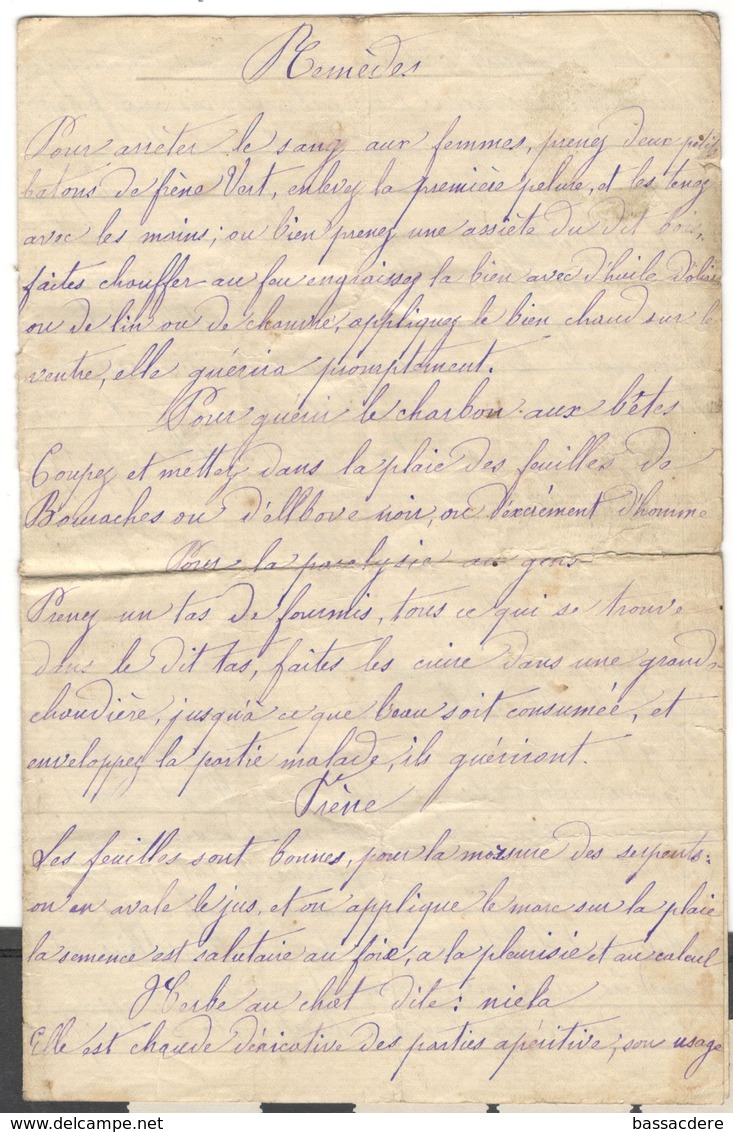 Remèdes
Pour arrêter le sang aux femmes, prenez deux petit
batons de frêne Vert, enlevez la première pelure, et les tenez
avec les mains; ou bien prenez une assiète du dit bois,
faites chouffer au feu engraissez la bien avec d'huile d'olive
ou de lin ou de chanvre, appliquez le bien chaud sur le
ventre, elle guérira promptement.
Pour guérir le charbon aux bêtes
Coupez et mettez dans la plaie des feuilles de
Bourraches ou d'ellbore noir, ou d'excrément d'homme
Pour la paralysie au gens
Prenez un tas de fourmis, tous ce qui se trouve
dans le dit tas, faites les cuire dans une grand
choudière, jusqu'à ce que l'eau soit consumée, et
enveloppez la partie malade, ils guériront.
Frêne
Les feuilles sont bonnes, pour la morsure des serpents:
on en avale le jus, et on applique le marc sur la plaie
la semence est salutaire au foie, a la pleurisie et au calcul
Herbe au chat dite: niela
Elle est chaude déricative des parties apéritive; son usage
bassacdere